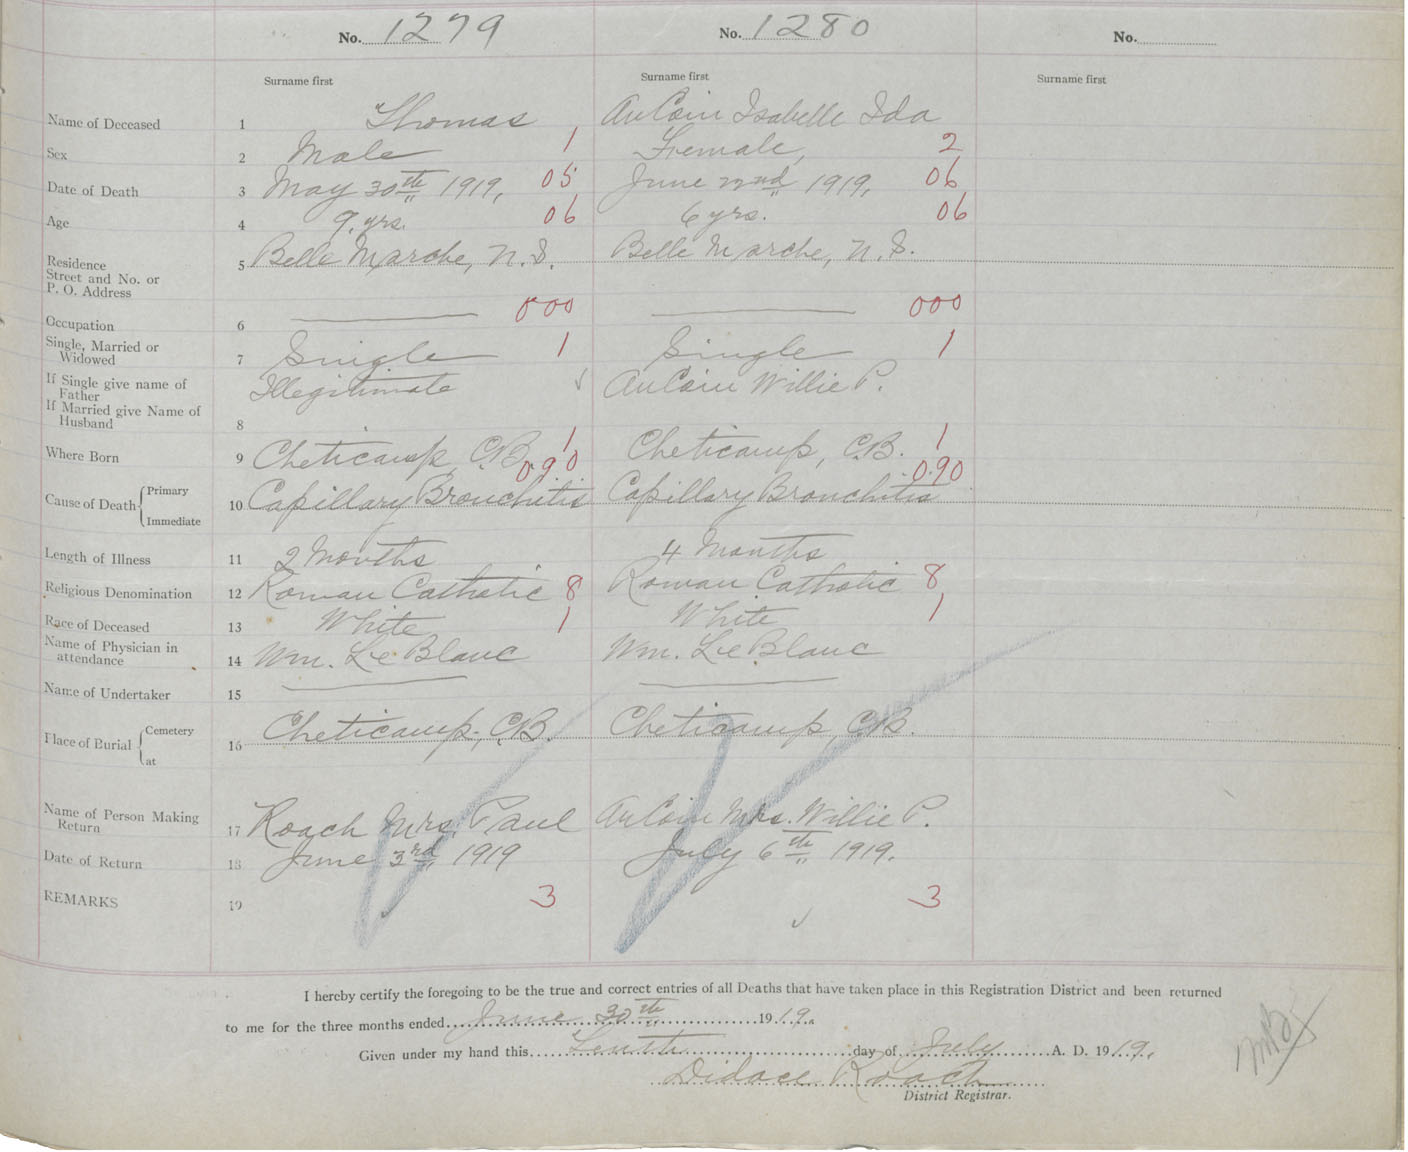 No. 1279 No. 1280 No.
Surname first Surname first Surname first
Name of Deceased 1 Thomas AuCoin Isabelle Ida
Sex 2 Male 1 Female, 2
Date of Death 3 May 30th 1919, 05 June 22nd 1919, 06
Age 4 9 yrs. 06 6 yrs. 06
Residence
Street and No. or
P. O. Address 5 Belle Marche, N.S. Belle Marche, N.S.
Occupation 6 000 000
Single, Married or
Widowed 7 Single 1 Single 1
If Single give name of
Father
If Married give Name of
Husband 8 Illegitimate ✓ AuCoin Willie P.
Where Born 9 Cheticamp, C.B. 1 Cheticamp, C.B. 1
090 090
Cause of Death { Primary
Immediate 10 Capillary Bronchitis Capillary Bronchitis
Length of Illness 11 2 Months 4 Months
Religious Denomination 12 Roman Catholic 8 Roman Catholic 8
Race of Deceased 13 White 1 White 1
Name of Physician in
attendance 14 Wm. LeBlanc Wm. LeBlanc
Name of Undertaker 15
Place of Burial { Cemetery
at 16 Cheticamp, C.B. Cheticamp, C.B.
Name of Person Making
Return 17 Roach Mrs. Paul AuCoin Mrs. Willie P.
Date of Return 18 June 3rd, 1919 July 6th 1919.
REMARKS 19 3 3
✓ ✓
I hereby certify the foregoing to be the true and correct entries of all Deaths that have taken place in this Registration District and been returned
to me for the three months ended June 30th 1919.
Given under my hand this Tenth day of July A. D. 1919.
Didace Roach
District Registrar.